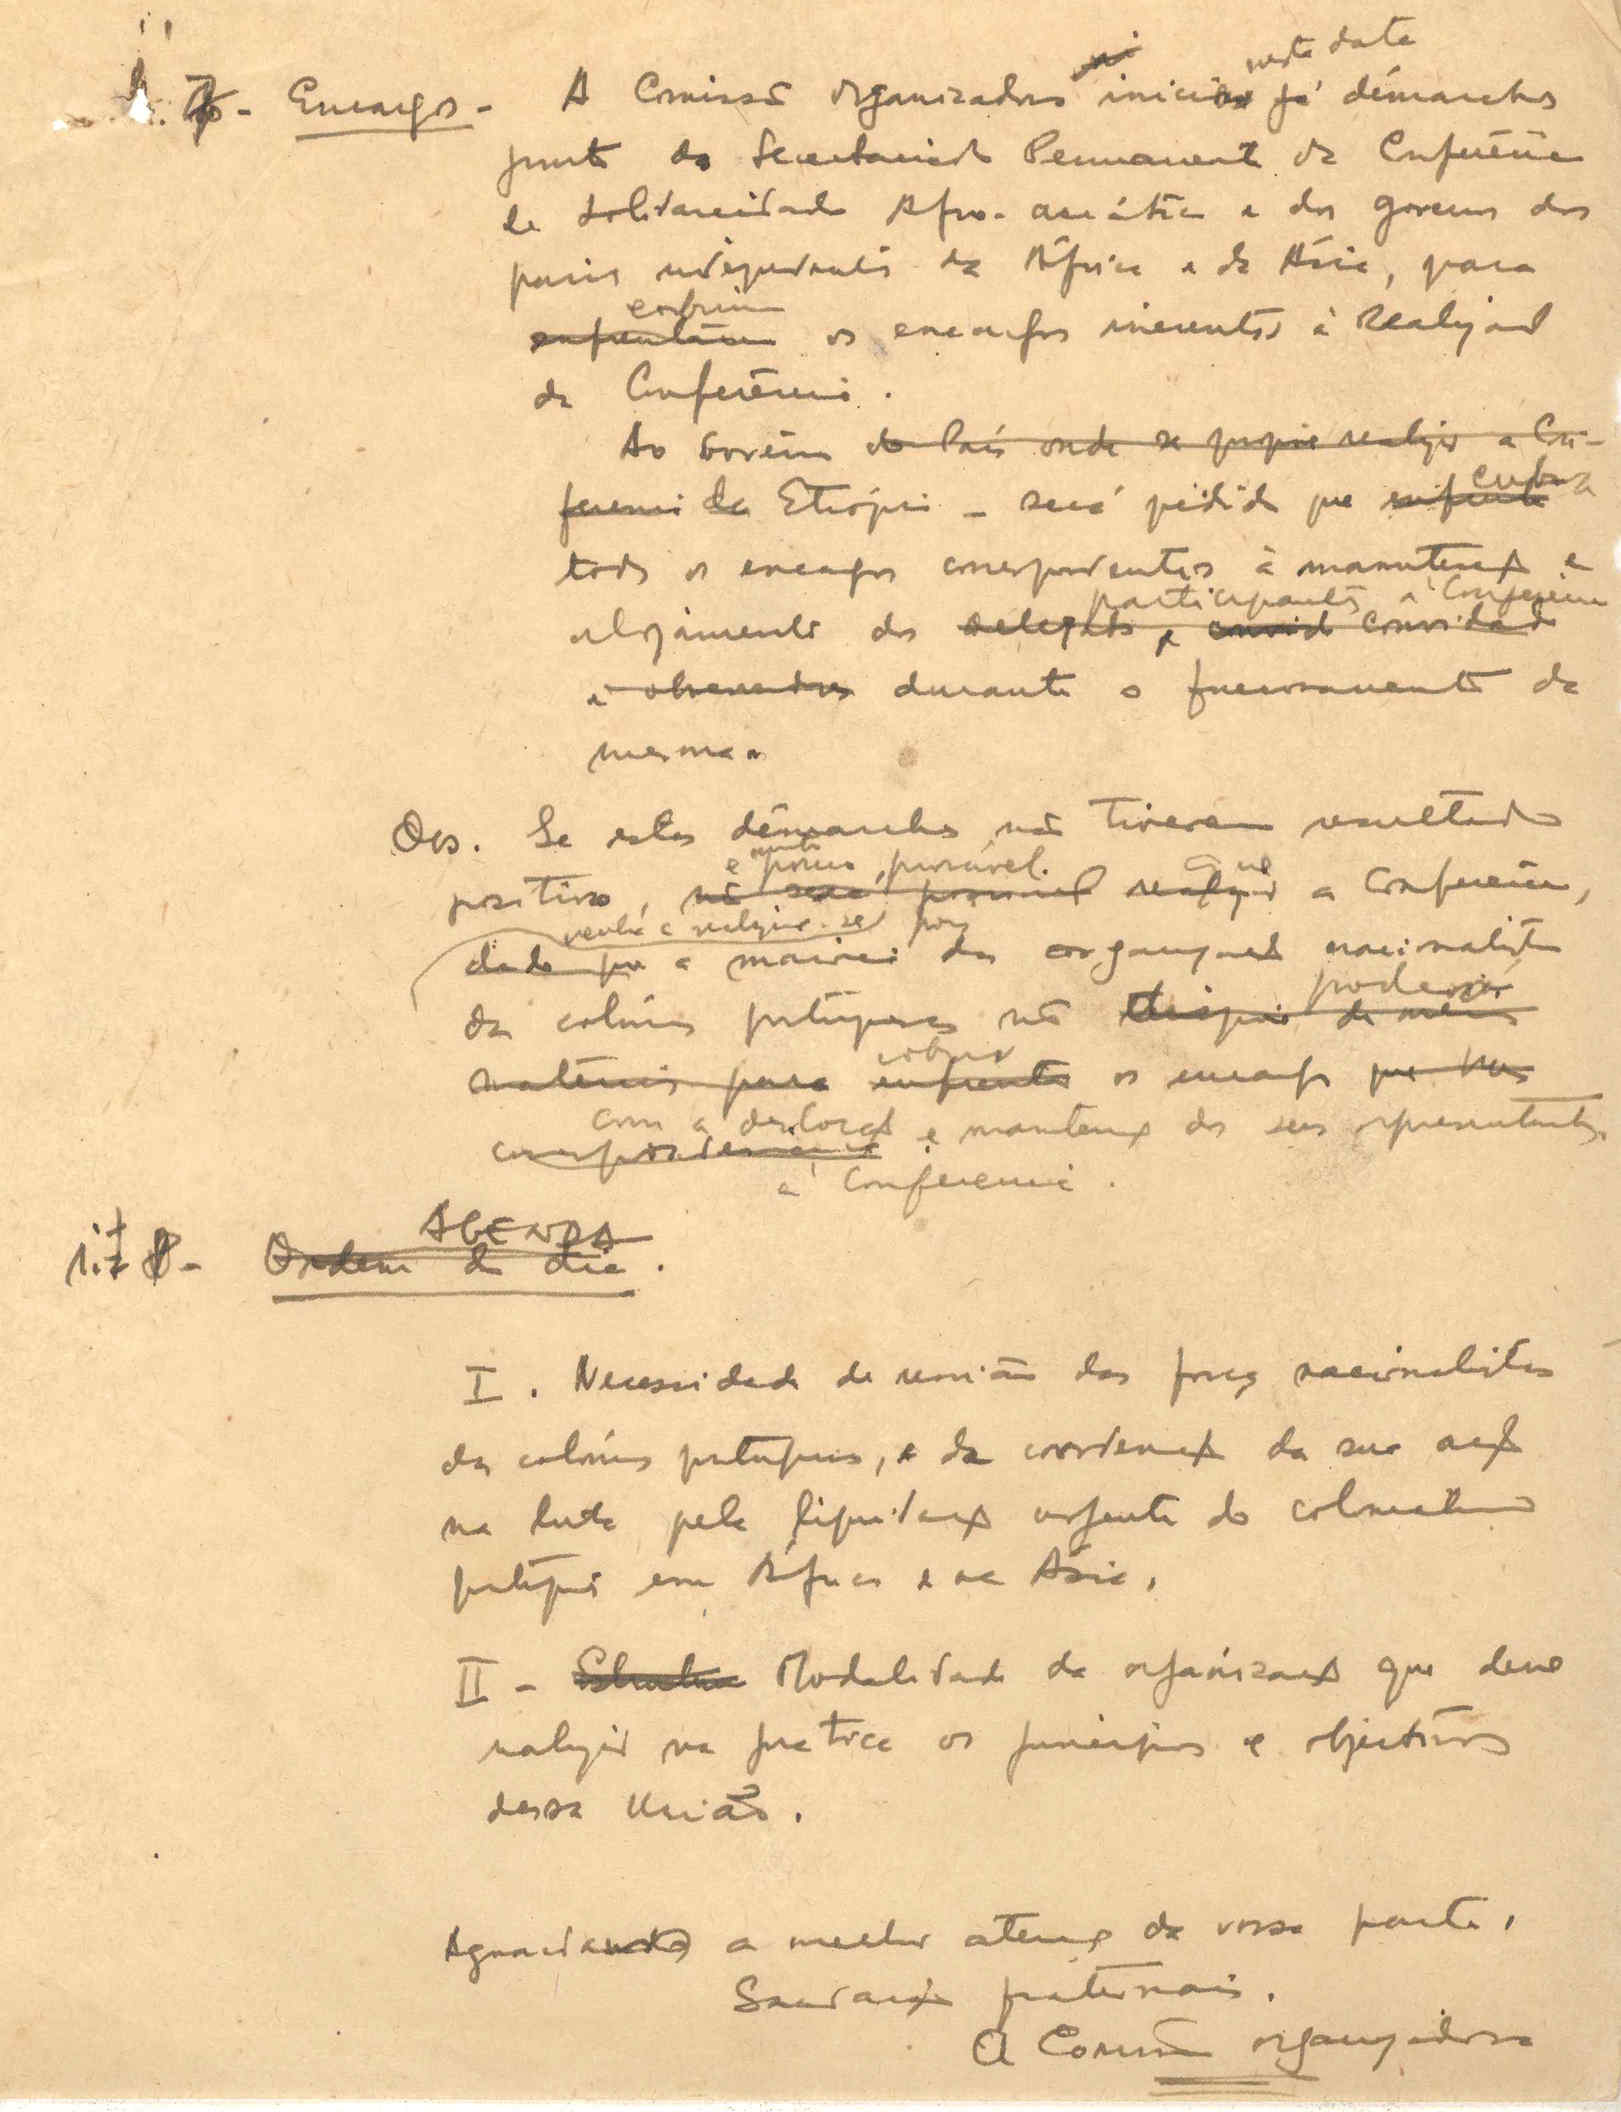 nesta data
Encargos - A Comissão organizadora inicia já démarches
junto do Secretariado Permanente da Conferência
de Solidariedade Afro-asiática e dos governos dos
países independentes da África e da Ásia, para
cobrirem
enfrentarem os encargos inerentes à realização
da Conferência.
Ao Govêrno do País onde se propõe realizar a Con-
ferência da Etiópia - será pedido que enfrente cubra
todos os encargos correspondentes à manutenção e
participantes à Conferência
alojamento dos delegados e convid convidados
e observadores durante o funcionamento da
mesma.
Obs. Se estas démarches não tiverem resultado
é muito pouco provável que
positivo, não será possível realizar a Conferência,
venha a realizar-se pois
dado que a maioria das organizações nacionalistas
poderá
das colónias portuguesas não dispõe de meios
cobrir
materiais para enfrentar os encargos que
com a deslocação e manutenção dos seus representantes
à Conferência.
AGENDA
Ordem do dia.
I. Necessidade de reunião das forças nacionalistas
das colónias portuguesas, e da coordenação da sua acção
na luta pela liquidação urgente do colonialismo
português em África e na Ásia.
II - Estrutura Modalidade da organização que deve
realizar na prática os princípios e objectivos
dessa União.
Aguardando a melhor atenção da vossa parte,
Saudações fraternais.
A Comissão organizadora